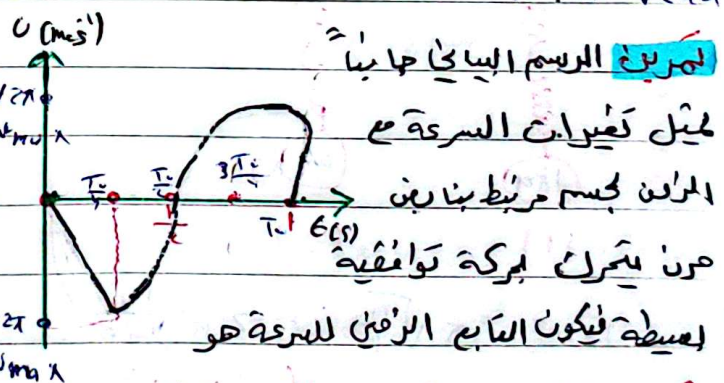 تمرين الرسم البياني جانباً
يمثل تغيرات السرعة مع
الزمن لجسم مرتبط بنابض
مرن يتحرك بحركة توافقية
بسيطة فيكون التابع الزمني للسرعة هو
υ (m.s⁻¹)
2π
max
T₀/4
T₀/2
3T₀/4
T₀
t(s)
2π
max